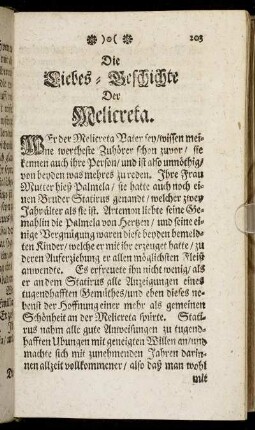 )o( 203
Die
Liebes-Geschichte
Der
Melicreta.
WEr der Melicreta Vater sey/wissen mei-
ne wertheste Zuhörer schon zuvor/ sie
kennen auch ihre Person/ und ist also unnöthig/
von beyden was mehres zu reden. Ihre Frau
Mutter hieß Palmela/ sie hatte auch noch ei-
nen Bruder Statirus genandt/ welcher zwey
Jahr älter als sie ist. Artemon liebte seine Ge-
mahlin die Palmela von Hertzen/ und seine ei-
nige Vergnügung waren diese beyden bemeld-
ten Kinder/ welche er mit ihr erzeuget hatte/ zu
deren Auferziehung er allen möglichsten Fleiß
anwendte. Es erfreuete ihn nicht wenig/ als
er an dem Statirus alle Anzeigungen eines
tugendhafften Gemüthes/ und eben dieses ne-
benst der Hoffnung einer mehr als gemeinen
Schönheit an der Melicreta spürte. Stati-
rus nahm alle gute Anweisungen zu tugend-
hafften Ubungen mit geneigten Willen an/ und
machte sich mit zunehmenden Jahren darin-
nen allzeit vollkommener/ also daß man wohl
mit